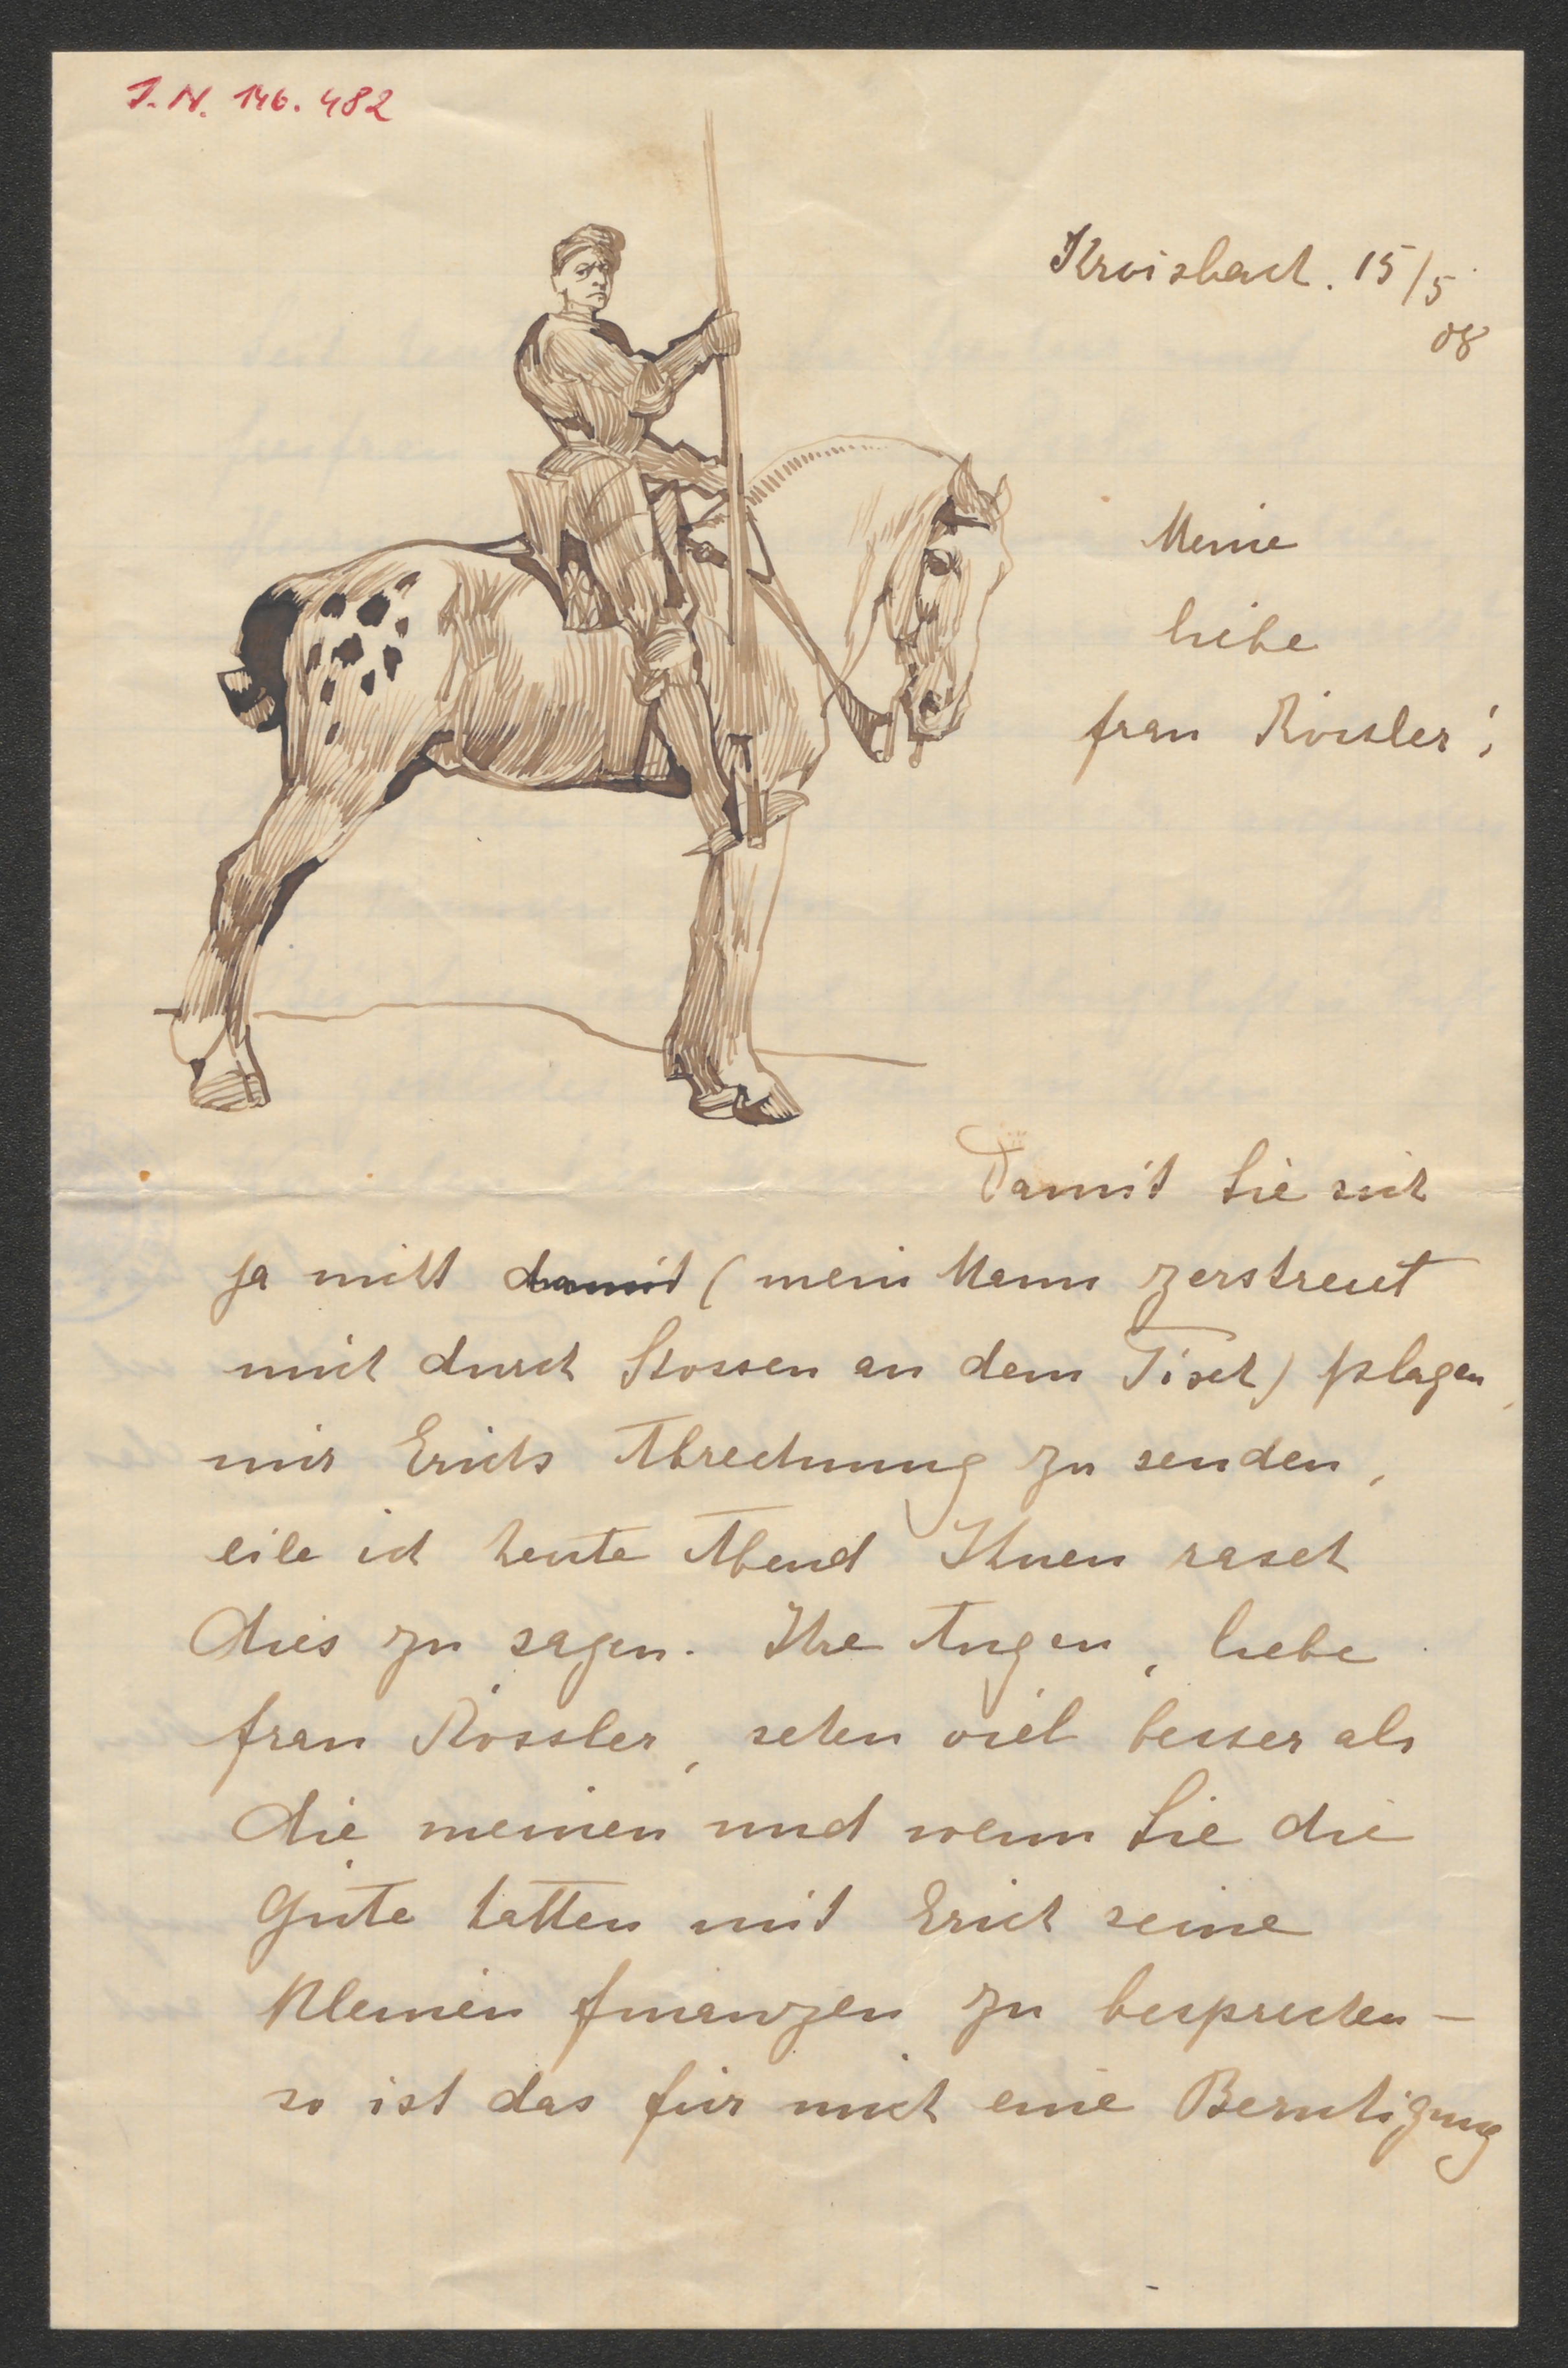 I.N. 146.482
Kroisbach. 15/5
08
Meine
liebe
frau Rössler!
Damit Sie sich
ja nicht damit (mein Mann zerstreut
mich durch Stossen an dem Tisch) plagen,
mir Erichs Abrechnung zu senden,
eile ich heute Abend Ihnen rasch
dies zu sagen. Ihre Augen, liebe
frau Rössler, sehen viel besser als
die meinen und wenn Sie die
Güte hätten mit Erich seine
kleinen finanzen zu besprechen –
so ist das für mich eine Beruhigung